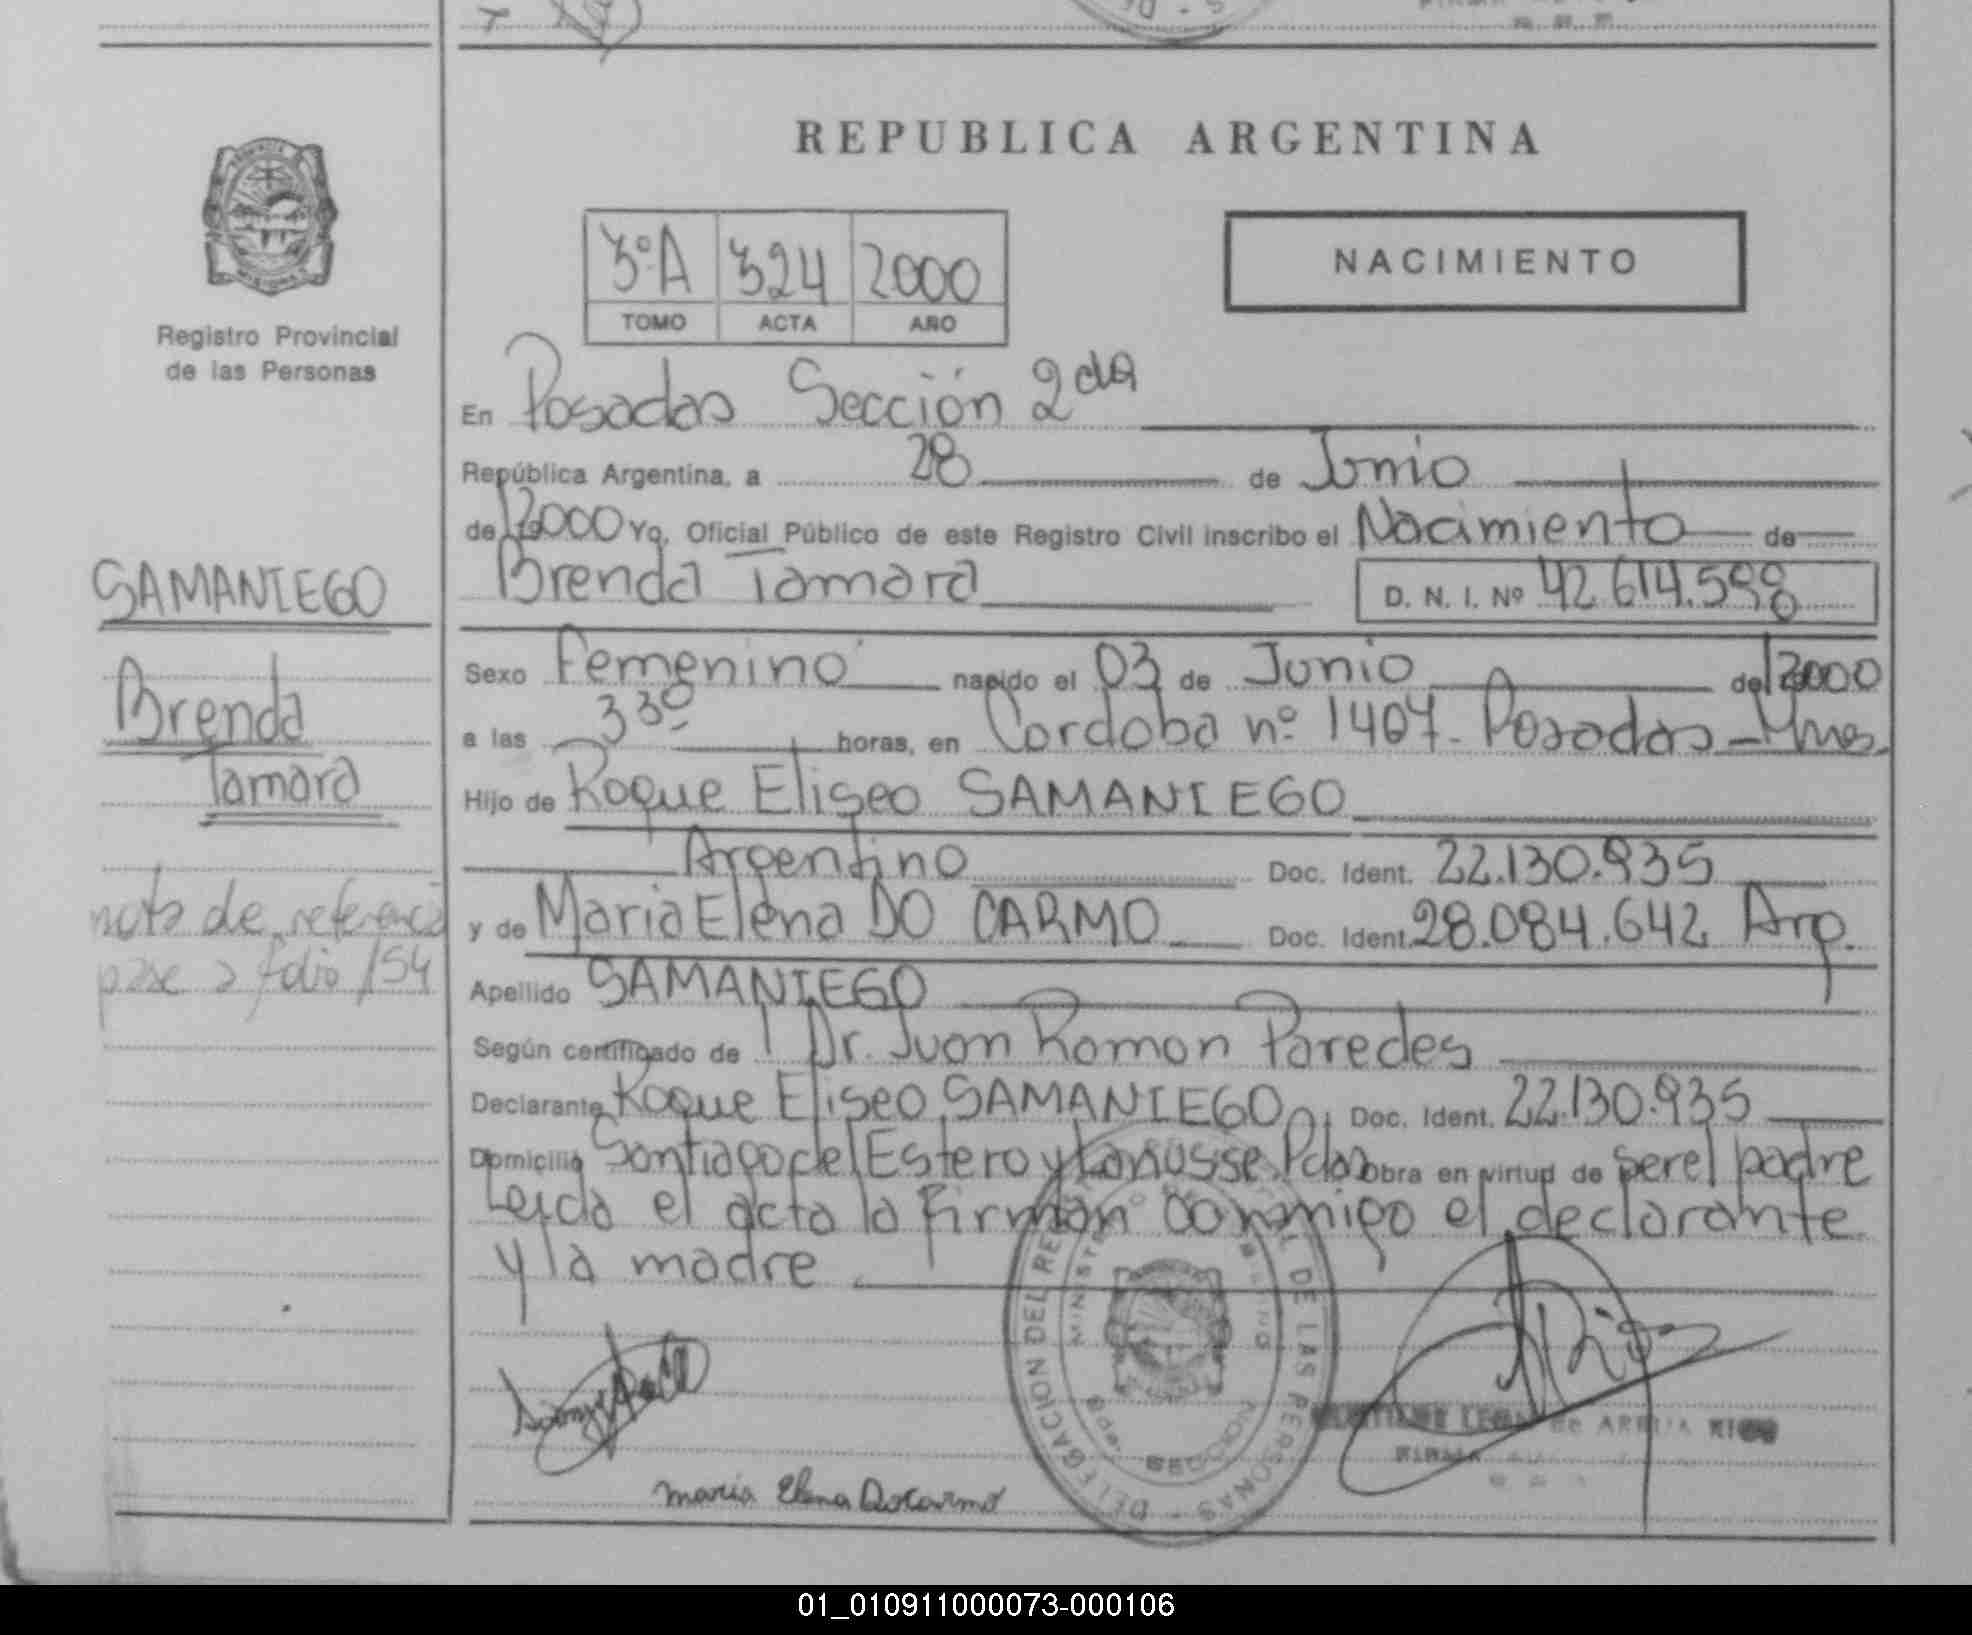 REPUBLICA ARGENTINA
3º A 324 2000
TOMO ACTA AÑO
NACIMIENTO
Registro Provincial
de las Personas
SAMANIEGO
Brenda
Tamara
nota de referencia
pase a folio 154
En Posadas Sección 2da
República Argentina, a 28 de Junio
de 2000 Yo, Oficial Público de este Registro Civil inscribo el Nacimiento de
Brenda Tamara D. N. I. Nº 42.614.598
Sexo Femenino nacido el 03 de Junio de 2000
a las 3 30 horas, en Cordoba nº 1407. Posadas - Mnes.
Hijo de Roque Eliseo SAMANIEGO
Argentino Doc. Ident. 22.130.935
y de Maria Elena DO CARMO Doc. Ident. 28.084.642 Arg.
Apellido SAMANIEGO
Según certificado de Dr. Juan Ramon Paredes
Declarante Roque Eliseo SAMANIEGO Doc. Ident. 22.130.935
Domicilio Santiago del Estero y Lanusse. Pdas obra en virtud de ser el padre
Leida el acta la firman conmigo el declarante
y la madre
Maria Elena Docarmo
DELEGACION DEL REGISTRO DE LAS PERSONAS
01_010911000073-000106